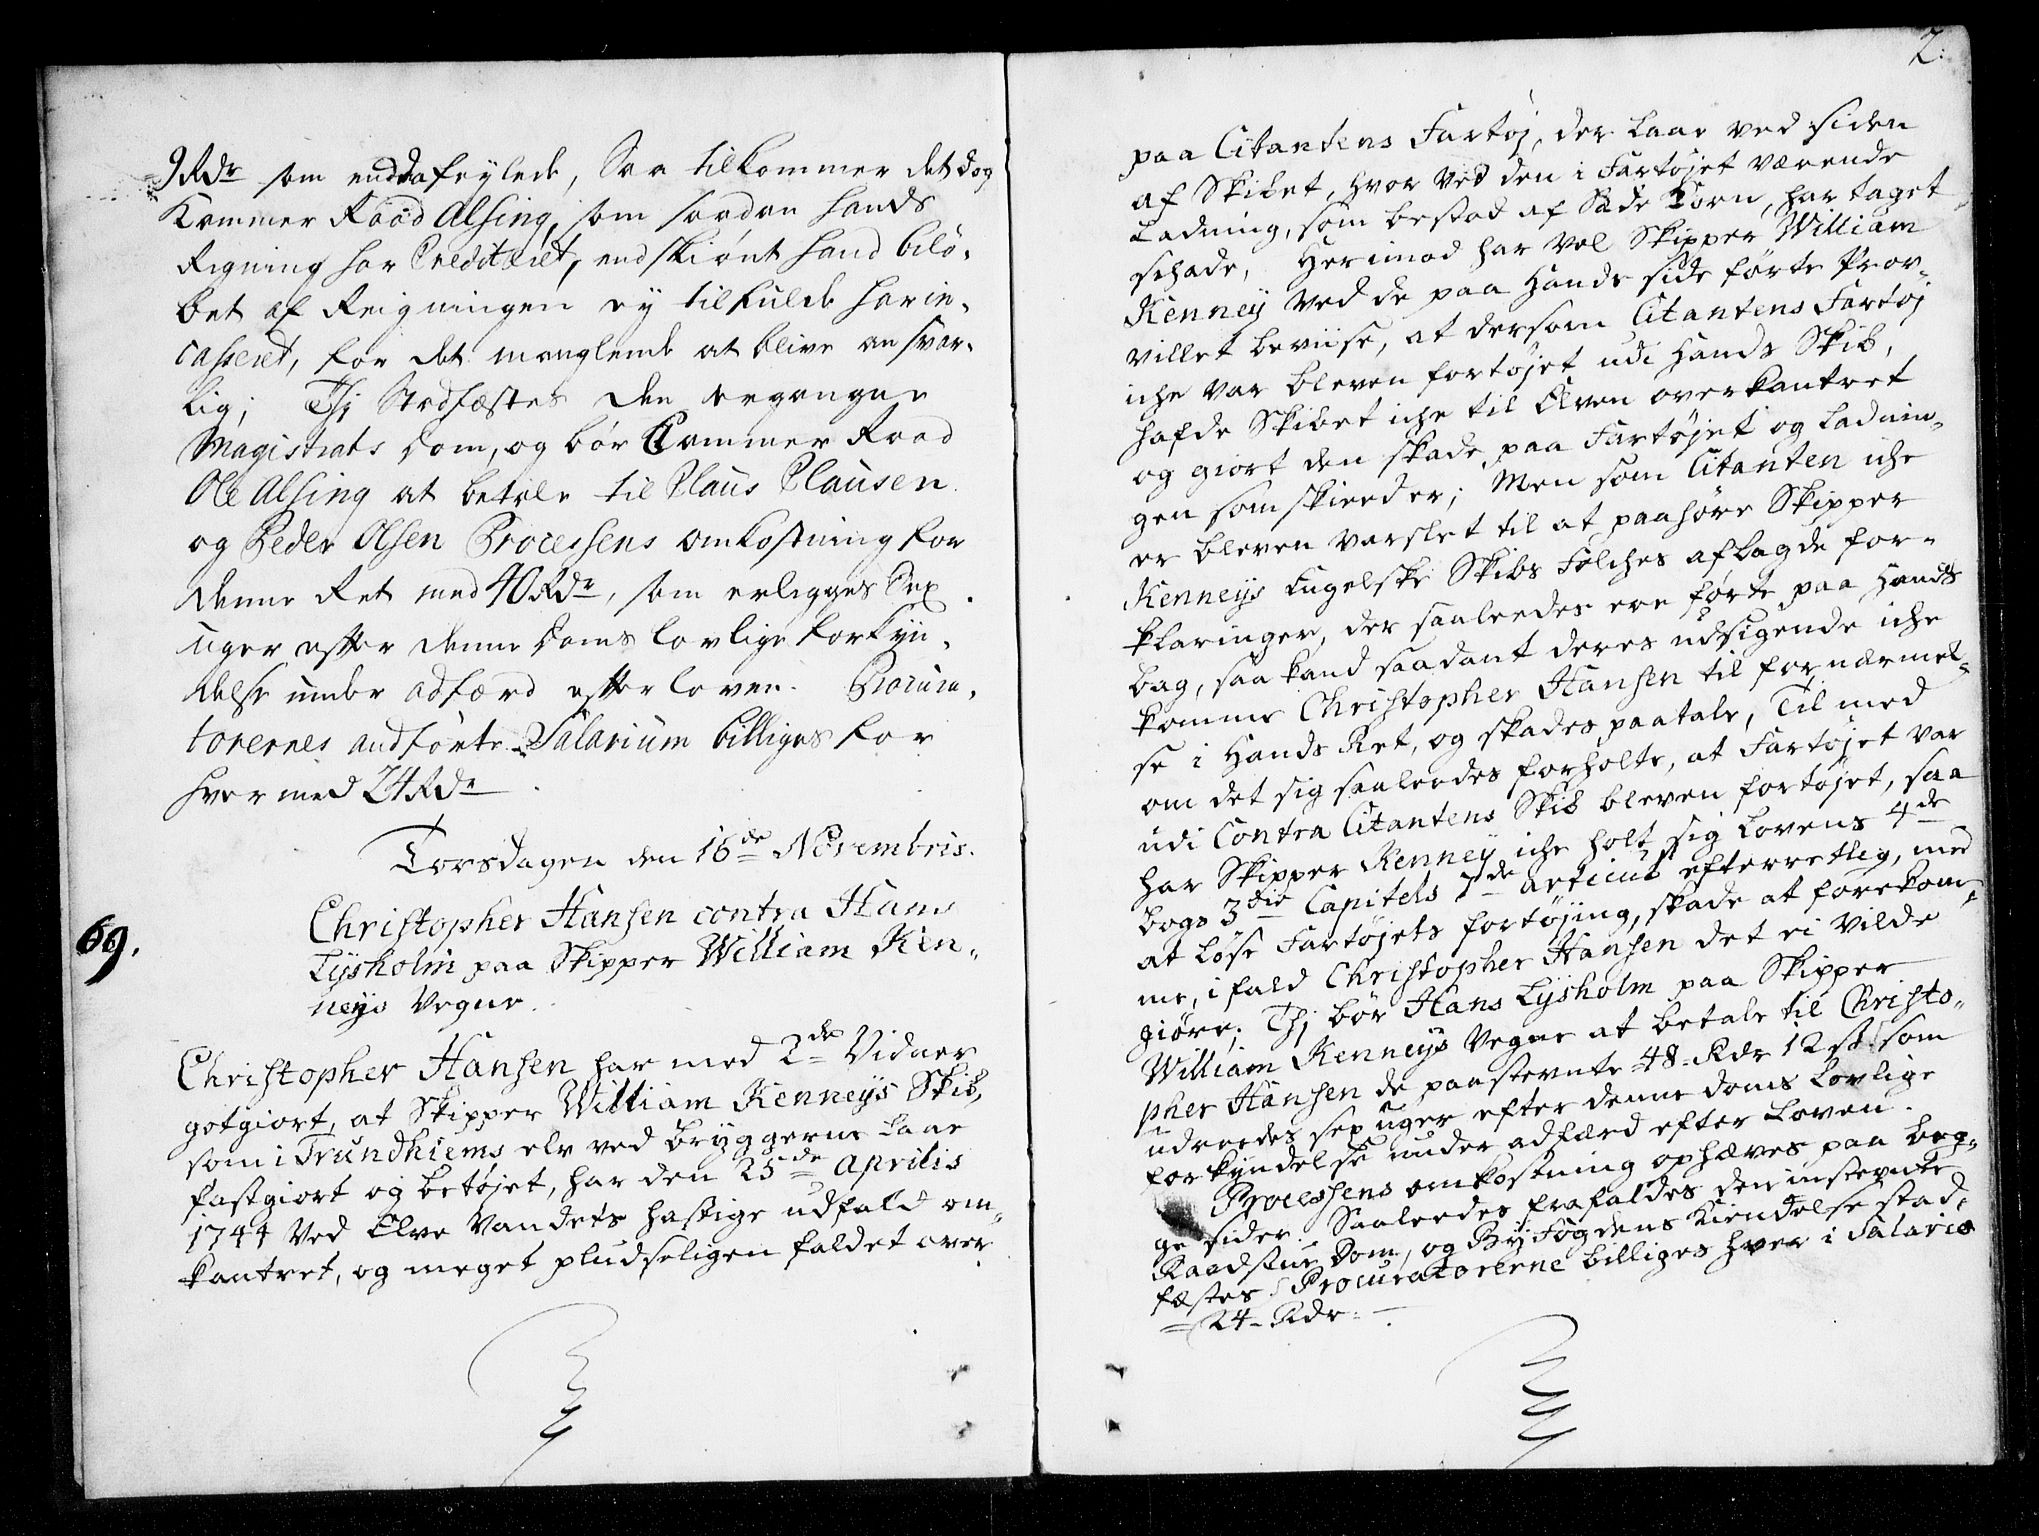 9 Rdr som endda feylede, Saa tilkommer det dog
Kammer Raad Alsing, som saadan hands
Regning har Crediteret, endskiønt hand belø-
bet af Reigningen ey tilfulde har in-
casseret, for det manglende at blive ansvar-
lig; Thj Stadfæstes den ergangne
Magistrats Dom, og bør Cammer Raad
Ole Alsing at betale til Claus Clausen
og Peder Olsen Processens omkostning for
denne Ret med 40 Rdr, som erligges Sex
uger effter denne Doms lovlige forkyn-
delse under adfærd effter loven. Procura-
torernes andførte Salarium billiges for
hver med 24 Rdr
Torsdagen den 16de Novembris.
69.
Christopher Hansen contra Hans
Lysholm paa Skipper William Ken-
neys Vegne.
Christopher Hansen har med 2de Vidner
gotgiort, at Skipper William Kenneys Skib,
som i Trundhiems elv ved bryggerne laae
fastgiort og betøjet, har den 25de Aprilis
1744 Ved Elve Vandets hastige udfald om-
kantret, og meget pludseligen faldet over
2.
paa Citantens Fartøj, der laae ved siden
af Skibet, hvor Ved den i Fartøjet værende
Ladning, som bestod af Sæde Korn, har taget
schade, Herimod har vel Skipper William
Kenney Ved de paa Hands side førte Prov-
villet beviise, at dersom Citantens Fartøj
iche var bleven fortøjet udi Hands Skib,
hafde Skibet iche til Elven overkantret
og giort den skade paa Fartøjet og Ladnin-
gen som skeeder; Men som Citanten iche
er bleven varslet til at paahøre Skipper
Kenneys Engelske Skibs Folches aflagde for-
klaringer, der saaleedes ere førte paa Hands
bag, saa kand saadant deres udsigende iche
komme Christopher Hansen til fornærmel-
se i Hands Ret, og skades paatale, Til med
om det sig saaleedes forholte, at Fartøjet var
udi Contra Citantens Skib bleven fortøjet, saa
har Skipper Kenney iche holt sig Lovens 4de
bogs 3die Capitels 7de articul efterretlig, med
at løse Fartøjets fortøjing, skade at forekom-
me, i fald Christopher Hansen det ei Vilde
giøre; Thj bør Hans Lysholm paa Skipper
William Kenneys Vegne at betale til Christo-
pher Hansen de paastevnte 48 Rdr 12 s som
udreedes sex uger efter denne doms Lovlige
forkyndelse under adfærd efter Loven.
Processens omkostning ophæves paa beg-
ge sider. Saaleedes frafaldes den instevnte
Raadstue Dom, og Byfogdens Kiendelse stad-
fæstes. Procuratorerne billiges hver i Salario
24 Rdr.